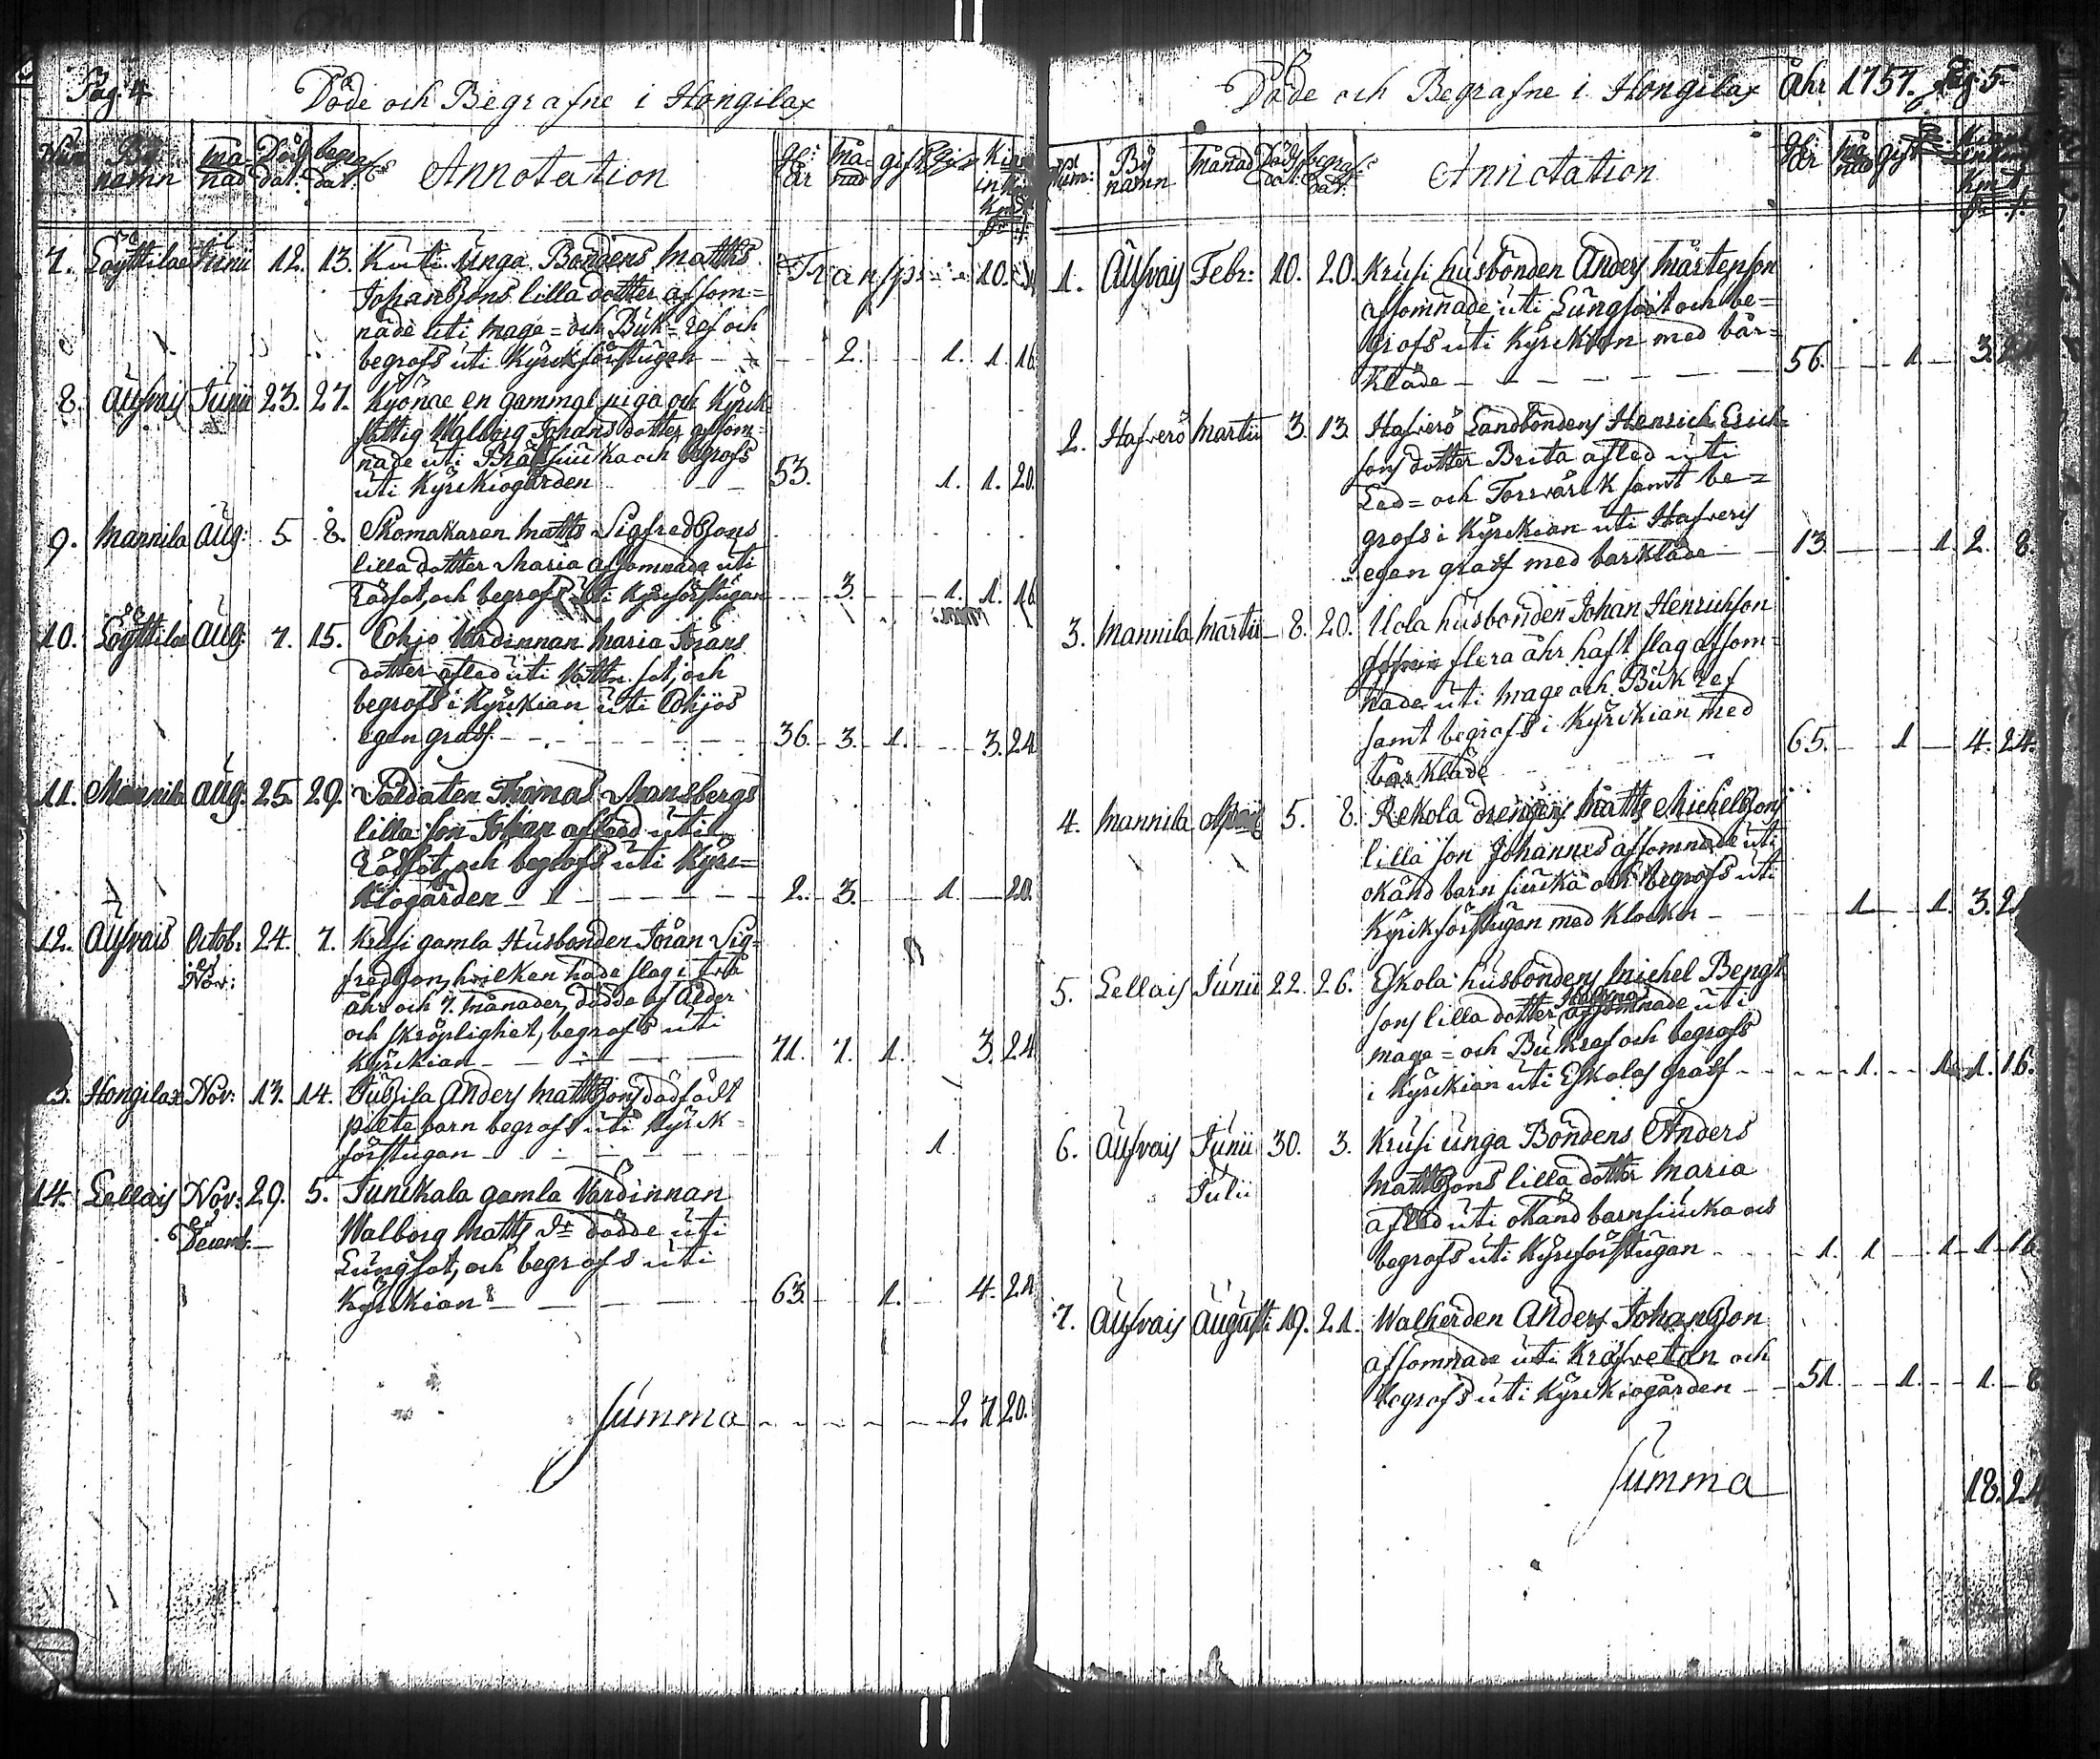 Pag: 4
Döde och Begrafne i Hongilax
Num By namn må-nad Död dat: begrafs dat: Annotation åhr må-nad gift ogift
7. Löyttilæ Junii 12. 13. Kuti unga Bondens Matths
Johanssons lilla dotter afsom=
nade uti Mage= och Buk=ref och
begrofs uti Kyrkförstugan – 2. 1. 1. 16.
Transp: 10.
8. Aufvais Junii 23. 27. Kyönæ en gammal piga och Kyrck
fattig Walborg Johans dotter afsom-
nade uti Bråksiuka och begrofs
uti Kyrkiogården – 53. 1. 1. 20.
9. Mannila Aug: 5. 8. Skomakaren Matts Sigfredssons
lilla dotter Maria afsomnade uti
Rödsot, och begrofs uti Kyrkförstugan – 3. 1. 1. 16.
10. Löyttilæ Aug: 7. 15. Eohjo Värdinnan Maria Jörans
dotter afled uti Vattn.sot, och
begrofs i Kyrkian uti Eohjos
egen graff. – 36. 3. 1. 3. 24.
11. Mannila Aug. 25. 29. Soldaten Thomas Mansbergs
lilla son Johan afled uti
Rödsot, och begrofs uti Kyrc=
kiogården – 2. 3. 1. 20.
12. Aufvais Octob: 24. 7. Krusi gamla Husbonden Jöran Sig-
et Nov: fredsson, hvilken hade slag i två
åhr och 7. månader, dödde af Ålder
och skröplighet, begrofs uti
Kyrkian – 71. 7. 1. 3. 24.
13. Hongilax Nov: 13. 14. Jussila Anders Mattssons dödfödt
pilte barn begrofs uti Kyrck-
förstugan – 1.
14. Lellais Nov: 29. 5. Junckala gamla Värdinnan
et Decemb. Walborg Matts dr dödde uti
Lungsot, och begrofs uti
Kyrkian – 63. 1. 4. 24.
Summa – 27. 20.
Döde och Begrafne i Hongilax Åhr 1757. Pag: 5.
Num: By namn Månad Döds dat: begraf: dat: Annotation åhr må nad gift
1. Aufvais Febr: 10. 20. Krusi husbonden Anders Mårtenson
afsomnade uti Lungsot och be=
grofs uti Kyrkion med bår=
kläde – 56. 1. 3.
2. Hafverö Martii 3. 13. Hafverö Landbondens Henrich Erich-
sons dotter Brita afled uti
Led= och Torrvärck samt be=
grofs i Kyrkian uti Hafveris
egen graf med barkläde – 13. 1. 2. 8.
3. Mannila Martii 8. 20. Uola husbonden Johan Henrichson
flera åhr haft slag afsom=
nade uti Mage och Buk ref
samt begrofs i Kyrkian med
bår kläde – 65. 1. 4. 24.
4. Mannila April 5. 8. Rekola drengens Matts Michelssons
lilla son Johannes afsomnade uti
okänd barn siuka och begrofs uti
Kyrckförstugan med Klockor – 1. 1. 3.
5. Lellais Junii 22. 26. Eskola husbondens Michel Bengt
sons lilla dotter afsomnade uti
mage= och Bukref och begrofs
i Kyrkian uti Eskolas graff – 1. 1. 1. 16.
6. Aufvais Junii 30. 3. Krusi unga Bondens Anders
Julii Mattssons lilla dotter Maria
afled uti okänd barnsiuka och
begrofs uti Kyrckförstugan – 1. 1. 1. 1. 16.
7. Aufvais Augusti 19. 21. Walherden Anders Johansson
afsomnade uti Kräfvetan och
begrofs uti Kyrkiogården – 51. 1. 1. 8.
Summa 18.